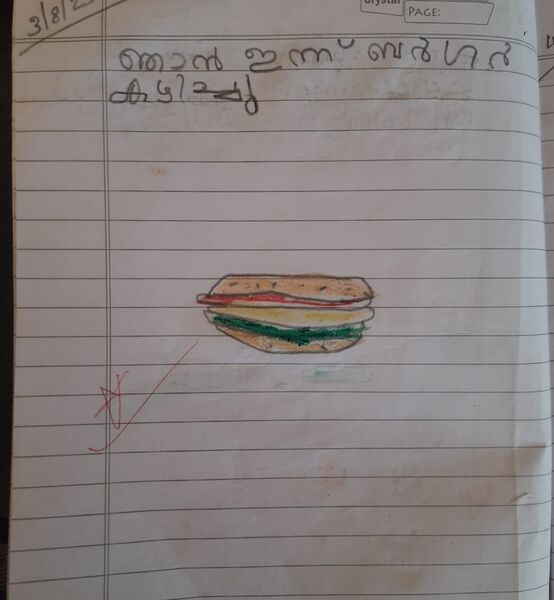 3/8/2
Crystal
PAGE:
ഞാൻ ഇന്ന് ബർഗർ
കഴിച്ചു